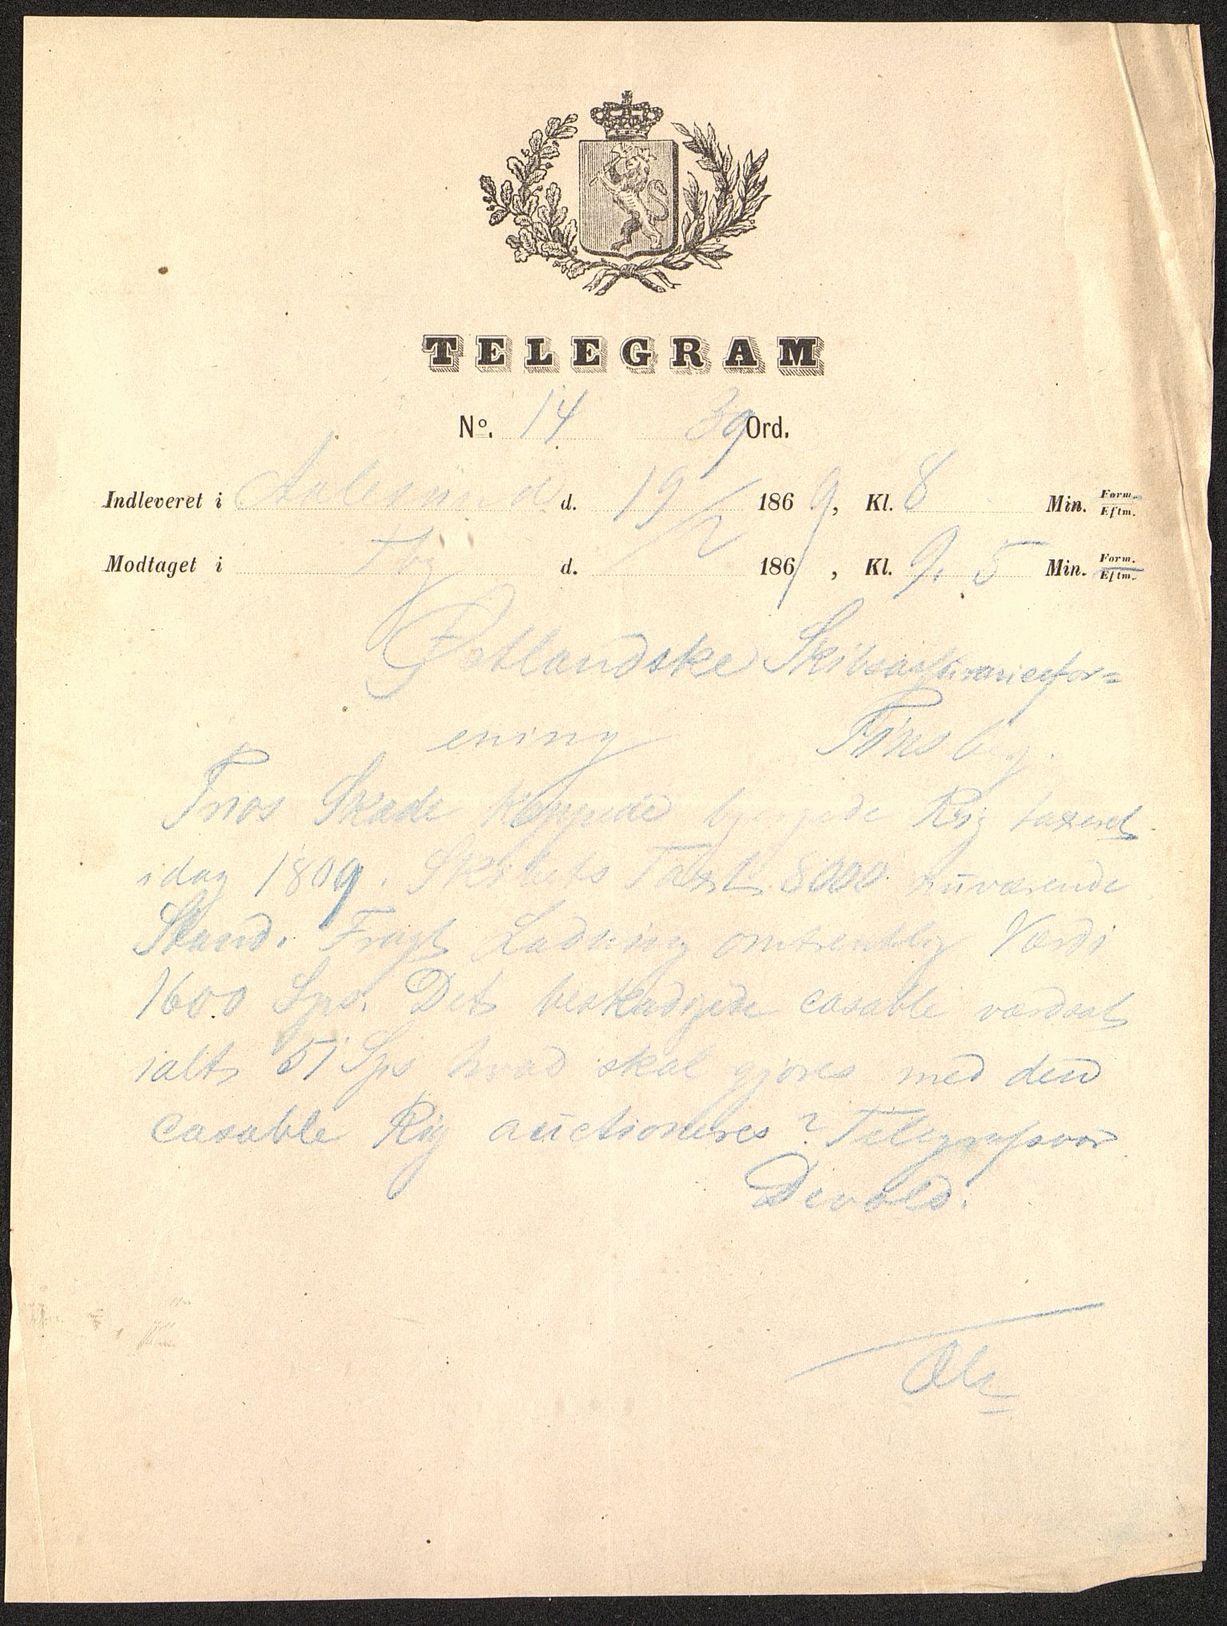 TELEGRAM
No. 14 39 Ord.
Indleveret i Aalesund d. 19/2 1869, Kl. 8 Min. Form. Eftm.
Modtaget i Tbg d. 186 , Kl. 9. 5 Min. Form. Eftm.
Østlandske Skibsassuranceefor=
ening Tønsberg.
Trios Skade kappede bjergede Rig taxeret
idag 1809. Skibets Taxt 8000 nuværende
Stand. Fragt Ladning omtrentlig Værdi
1600 Sps. Det beskadigede casable værdsat
ialt 51 Sps hvad skal gjøres med den
casable Rig auctioneres? Telegrafsvar
Devold.